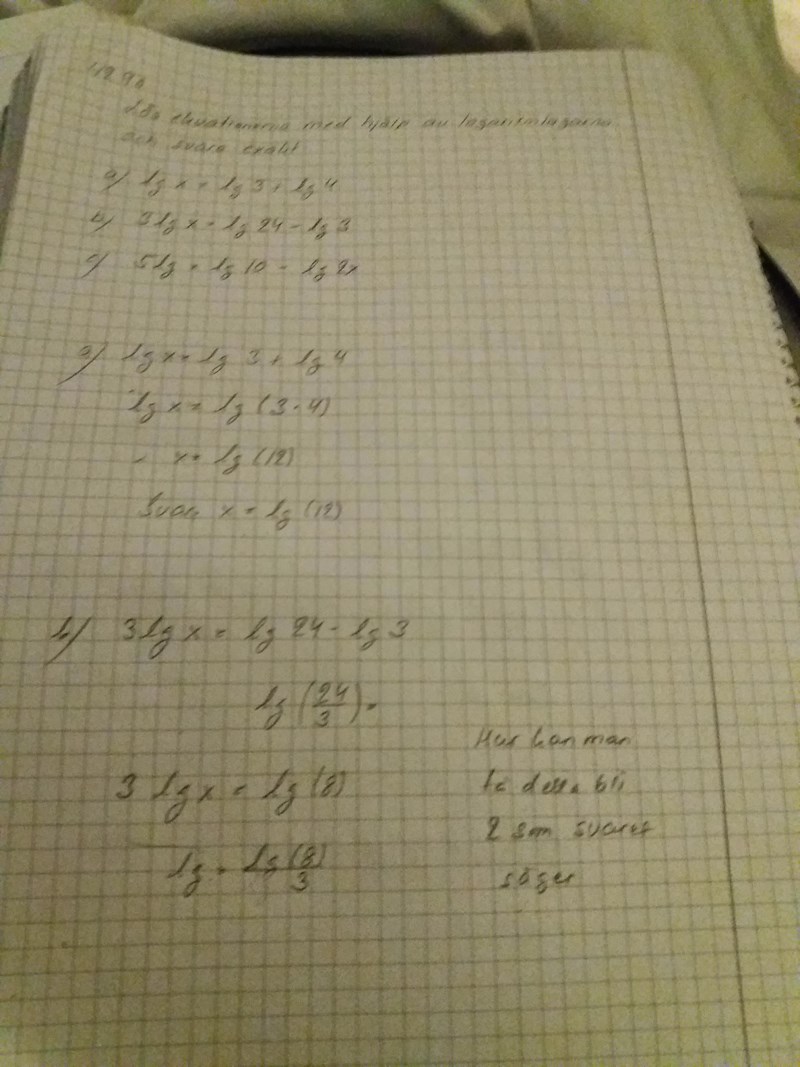 Lös ekvationerna med hjälp av logaritmlagarna
och svara exakt
a) lg x = lg 3 + lg 4
b) 3 lg x = lg 24 - lg 3
c) 5 lg = lg 10 - lg 2x
a) lg x = lg 3 + lg 4
lg x = lg (3 · 4)
x = lg (12)
Svar x = lg (12)
b) 3 lg x = lg 24 - lg 3
lg (24/3) =
3 lg x = lg (8)
lg = lg (8)/3
Hur kan man
få detta bli
2 som svaret
säger